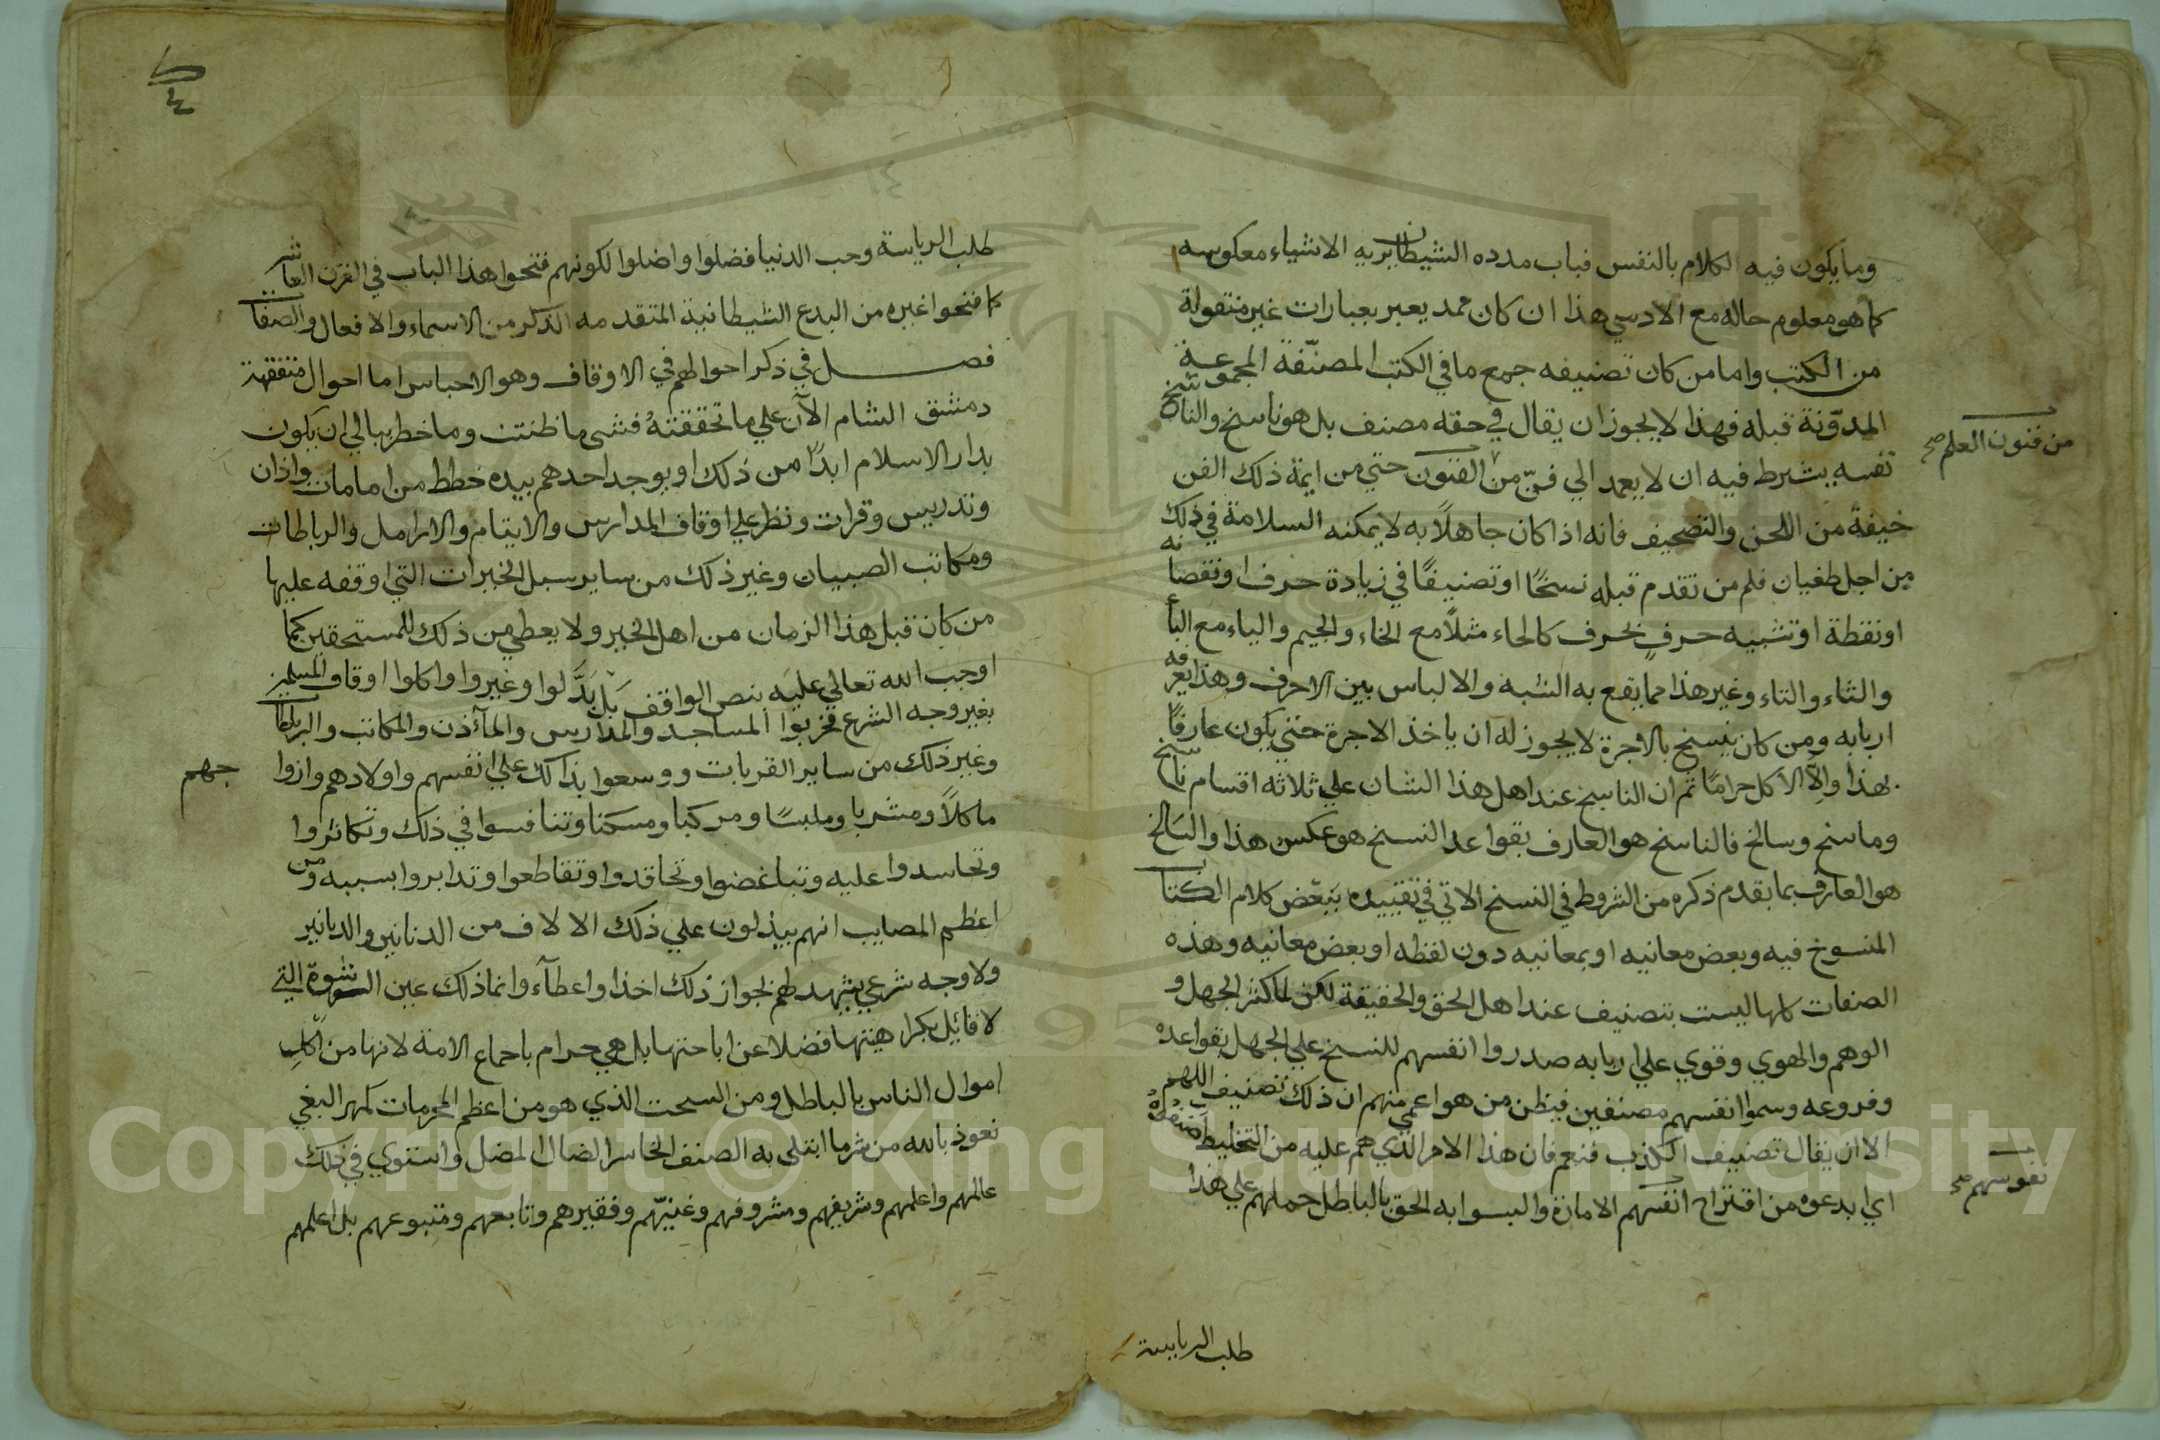 وما يكون فيه الكلام بالنفس فباب مدده الشيطان يريه الاشياء معكوسه
كما هو معلوم حاله مع الادمي هذا ان كان ممد يعبر بعبارات غير منقولة
من الكتب واما من كان تصنيفه جمع ما في الكتب المصنّفة المجموعة
المدوّنة قبله فهذا لا يجوز ان يقال في حقه مصنف بل هو ناسخ والناسخ
نفسه يشرط فيه ان لا يعمد الي فنّ من الفنون حتي من ايمة ذلك الفن
من فنون العلم صح
خيفة من اللحن والتصحيف فانه اذا كان جاهلاً به لا يمكنه السلامة في ذلك
من اجل طغيان قلم من تقدم قبله نسخًا او تصنيفًا في زيادة حرف او نقصانه
او نقطة او تشبيه حرفٍ بحرف كالحاء مثلاً مع الخاء والجيم والياء مع الباء
والثاء والتاء وغير هذا مما يقع به الشبه والالباس بين الاحرف وهذا يعرفه
اربابه ومن كان ينسخ بالاجرة لا يجوز له ان ياخذ الاجرة حتي يكون عارفًا
بهذا والاّ الاكل حرامًا ثم ان الناسخ عند اهل هذا الشان علي ثلاثه اقسام ناسخ
وماسخ وسالخ فالناسخ هو العارف بقواعد النسخ هو عكس هذا والسالخ
هو العارف بما تقدم ذكره من الشروط في النسخ الاتي في تقييده ببعض كلام الكتاب
المنسوخ فيه وبعض معانيه او بمعانيه دون لفظه او بعض معانيه وهذه
الصفات كلها ليست بتصنيف عند اهل الحق والحقيقة لكن لما كثر الجهل و
الوهم والهوي وقوي علي اربابه صدروا انفسهم للنسخ علي الجهل بقواعده
وفروعه وسموا انفسهم مصنفين فيظن من هو اعمي منهم ان ذلك تصنيف اللهم
الا ان يقال تصنيف الكذب فنعم فان هذا الامر الذي هم عليه من التخليط
اي ابدعوه من اقتراح انفسهم الامارة والبسوا به الحق بالباطل حملهم علي هذا
نفوسهم صح
طلب الرياسة
طلب الرياسة وحب الدنيا فضلوا واضلوا لكونهم فتحوا هذا الباب في القرن العاشر
كما فتحوا غيره من البدع الشيطانية المتقدمه الذكر من الاسماء والافعال والصفات
فصل في ذكر احوالهم في الاوقاف وهو الاحباس اما احوال متفقهة
دمشق الشام الآن علي ما تحققتهُ فشي ما ظننت وما خطر ببالي ان يكون
بدار الاسلام ابدًا من ذلك او يوجد احدهم بيده خطط من امامات واذان
وتدريس وقرات ونظر علي اوقاف المدارس والايتام والارامل والرباطات
ومكاتب الصبيان وغير ذلك من ساير سبل الخيرات التي اوقفه عليها
من كان قبل هذا الزمان من اهل الخير ولا يعطي من ذلك للمستحقين كما
اوجب الله تعالي عليه بنص الواقف بَل بَدَّلوا وغيروا واكلوا اوقاف المسلمين
بغير وجه الشرع فخربوا المساجد والمدارس والمآذن والمكاتب والرباطات
وغير ذلك من ساير القربات ووسعوا بذلك علي انفسهم واولادهم وازوا
جهم
ماكلاً ومشربا وملبسًا ومركبا ومسكنا وتنافسوا في ذلك وتكاثروا
وتحاسدوا عليه وتباغضوا وتحاقدوا وتقاطعوا وتدابروا بسببه ومن
اعظم المصايب انهم يبذلون علي ذلك الالاف من الدنانير والدنانير
ولا وجه شرعي يشهد لهم بجواز ذلك اخذا واعطآء وانما ذلك عين الرشوة التي
لا قائل بكراهيتها فضلا عن اباحتها بل هي حرام باجماع الامة لانها من اكل
اموال الناس بالباطل ومن السحت الذي هو من اعظم المحرمات كمهر البغي
نعوذ بالله من شر ما ابتلي به الصنف الخاسر الضال المضل واستوي في ذلك
عالمهم واعلمهم وشريفهم ومشروفهم وغنيّهم وفقيرهم وتابعهم ومتبوعهم بل اعلمهم
Copyright © King Saud University